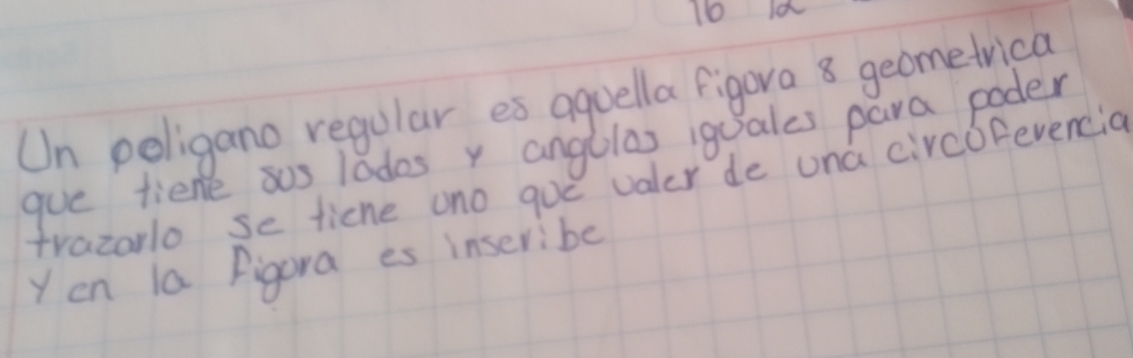 16 12
Un poligano regular es aquella figora 8 geometrica
que tiene sus lados y angulos iguales para poder
trazarlo se tiene uno que valer de una circuferencia
y en la figora es inscribe